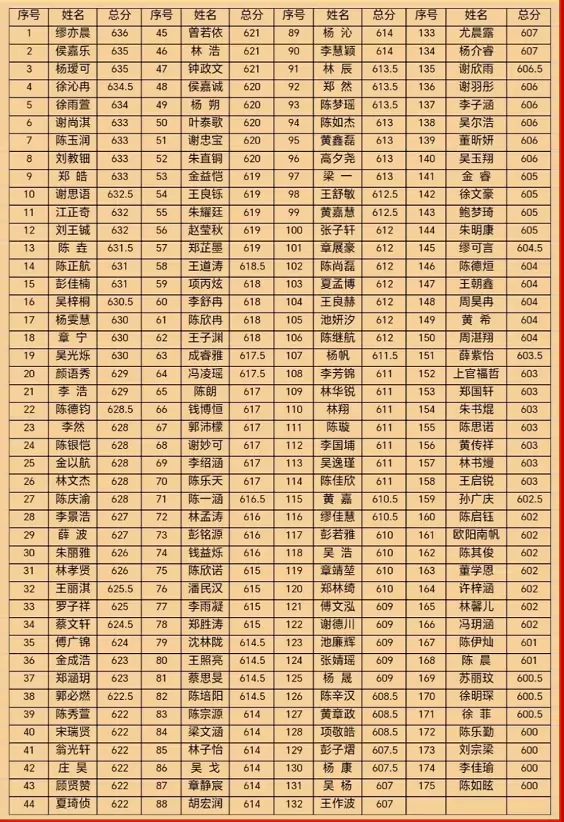 序号 姓名 总分 序号 姓名 总分 序号 姓名 总分 序号 姓名 总分
1 缪亦晨 636 45 曾若依 621 89 杨 沁 614 133 尤晨露 607
2 侯嘉乐 635 46 林 浩 621 90 李慧颖 614 134 杨介睿 607
3 杨瑷可 635 47 钟政文 621 91 林 辰 613.5 135 谢欣雨 606.5
4 徐沁冉 634.5 48 侯嘉诚 620 92 郑 然 613.5 136 谢羽彤 606
5 徐雨萱 634 49 杨 朔 620 93 陈梦瑶 613.5 137 李子涵 606
6 谢尚淇 633 50 叶泰歌 620 94 陈如杰 613 138 吴尔浩 606
7 陈玉润 633 51 谢忠宝 620 95 黄鑫磊 613 139 董昕妍 606
8 刘教钿 633 52 朱直铜 620 96 高夕尧 613 140 吴玉翔 606
9 郑 皓 633 53 金益恺 619 97 梁 一 613 141 金 睿 605
10 谢思语 632.5 54 王良铄 619 98 王舒敏 612.5 142 徐文豪 605
11 江正奇 632 55 朱耀廷 619 99 黄嘉慧 612.5 143 鲍梦琦 605
12 刘王铖 632 56 赵莹秋 619 100 张子轩 612 144 朱明康 605
13 陈 垚 631.5 57 郑芷墨 619 101 章展豪 612 145 缪可言 604.5
14 陈正航 631 58 王道涛 618.5 102 陈尚磊 612 146 陈德烜 604
15 彭佳楠 631 59 项丙炫 618 103 夏孟博 612 147 王朝鑫 604
16 吴梓桐 630.5 60 李舒冉 618 104 王良赫 612 148 周昊冉 604
17 杨雯慧 630 61 陈欣冉 618 105 池妍汐 612 149 黄 希 604
18 章 宁 630 62 王子渊 618 106 陈继航 612 150 周湛翔 604
19 吴光烁 630 63 成睿雅 617.5 107 杨帆 611.5 151 薛紫怡 603.5
20 颜语秀 629 64 冯凌瑶 617.5 108 李芳锦 611 152 上官福哲 603
21 李 浩 629 65 陈朗 617 109 林华锐 611 153 郑国轩 603
22 陈德钧 628.5 66 钱博恒 617 110 林翔 611 154 朱书焜 603
23 李然 628 67 郭沛檬 617 111 陈璇 611 155 陈思诺 603
24 陈银恺 628 68 谢妙可 617 112 李国埔 611 156 黄传祥 603
25 金以航 628 69 李绍涵 617 113 吴逸瑾 611 157 林书熳 603
26 林文杰 628 70 陈乐天 617 114 陈佳欣 611 158 王启锐 603
27 陈庆渝 628 71 陈一涵 616.5 115 黄 嘉 610.5 159 孙广庆 602.5
28 李景浩 627 72 林孟涛 616 116 缪佳慧 610.5 160 陈启钰 602
29 薛 波 627 73 彭铭源 616 117 彭若雅 610 161 欧阳南帆 602
30 朱丽雅 626 74 钱益烁 616 118 吴 浩 610 162 陈其俊 602
31 林孝贤 626 75 陈欣诺 615 119 章靖堃 610 163 董学恩 602
32 王丽淇 625.5 76 潘民汉 615 120 郑林绮 610 164 许梓涵 602
33 罗子祥 625 77 李雨凝 615 121 傅文泓 609 165 林馨儿 602
34 蔡文轩 624.5 78 郑胜涛 615 122 谢德川 609 166 冯玥涵 602
35 傅广锦 624 79 沈林陇 614.5 123 池廉辉 609 167 陈伊灿 601
36 金成浩 623 80 王照亮 614.5 124 张婧瑶 609 168 陈 晨 601
37 郑涵玥 623 81 蔡思旻 614.5 125 杨 晟 609 169 苏丽玟 600.5
38 郭必燃 622.5 82 陈培阳 614.5 126 陈辛汉 608.5 170 徐明琛 600.5
39 陈秀萱 622 83 陈宗源 614 127 黄章政 608.5 171 徐 菲 600.5
40 宋瑞贤 622 84 梁文涵 614 128 项敬皓 608.5 172 陈乐勤 600
41 翁光轩 622 85 林子怡 614 129 彭子熠 607.5 173 刘宗梁 600
42 庄 昊 622 86 吴 戈 614 130 杨 康 607.5 174 李佳瑜 600
43 顾贤赞 622 87 章静宸 614 131 吴 杨 607 175 陈如昡 600
44 夏琦侦 622 88 胡宏润 614 132 王作波 607